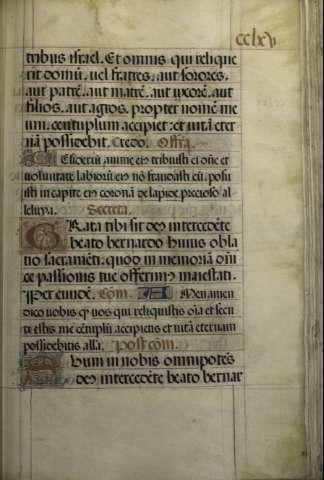 cclxv
tribus israel. Et omnis qui relique
rit domū. vel fratres. aut sorores.
aut patrē. aut matrē. aut uxorē. aut
filios. aut agros. propter nomē me
um. centuplum accipiet: et vitā eter
nā possidebit. Credo. Offra.
Desideriū anime eius tribuisti ei dñe et
voluntate labiorū eius nō fraudasti eū. posu
isti in capite eius coronā de lapide precioso al
leluya. Secreta.
Grata tibi sit deus intercedēte
beato bernardo huius obla
tio sacramēti. quod in memoriā dñi
ce passionis tue offerimus maiestati.
Per eundē. Cōm. Amen amen
dico vobis quod vos qui reliquistis oīa et secu
ti estis me cētuplū accipietis et vitā eternam
possidebitis. alla. Post cōm.
Sum in nobis omnipotēs
deus intercedēte beato bernar